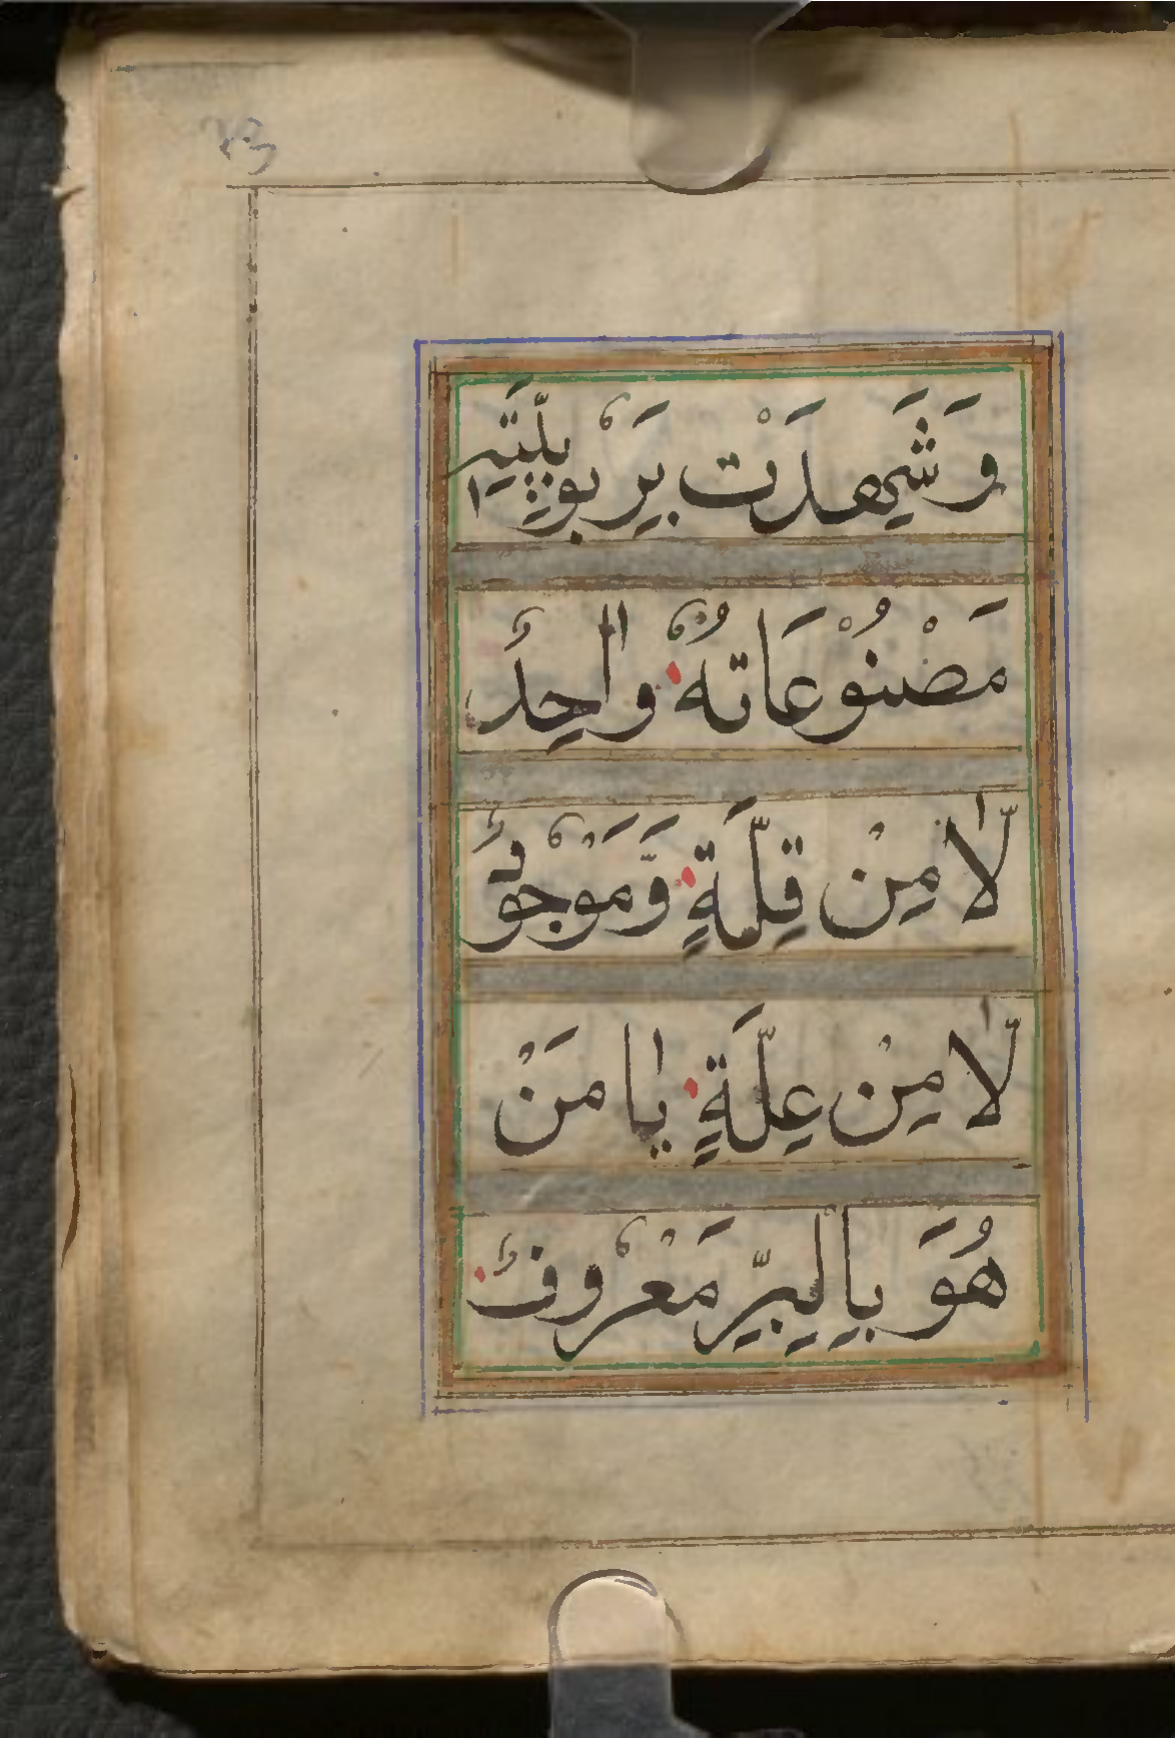 وَشَهِدَتْ بِرَبُوبِيَّتِهِ
مَصْنُوْعَاتُهُ وَاحِدٌ
لَّا مِنْ قِلَّةٍ وَّمَوْجُوْدٌ
لَّا مِنْ عِلَّةٍ يَا مَنْ
هُوَ بِالْبِرِّ مَعْرُوْفٌ